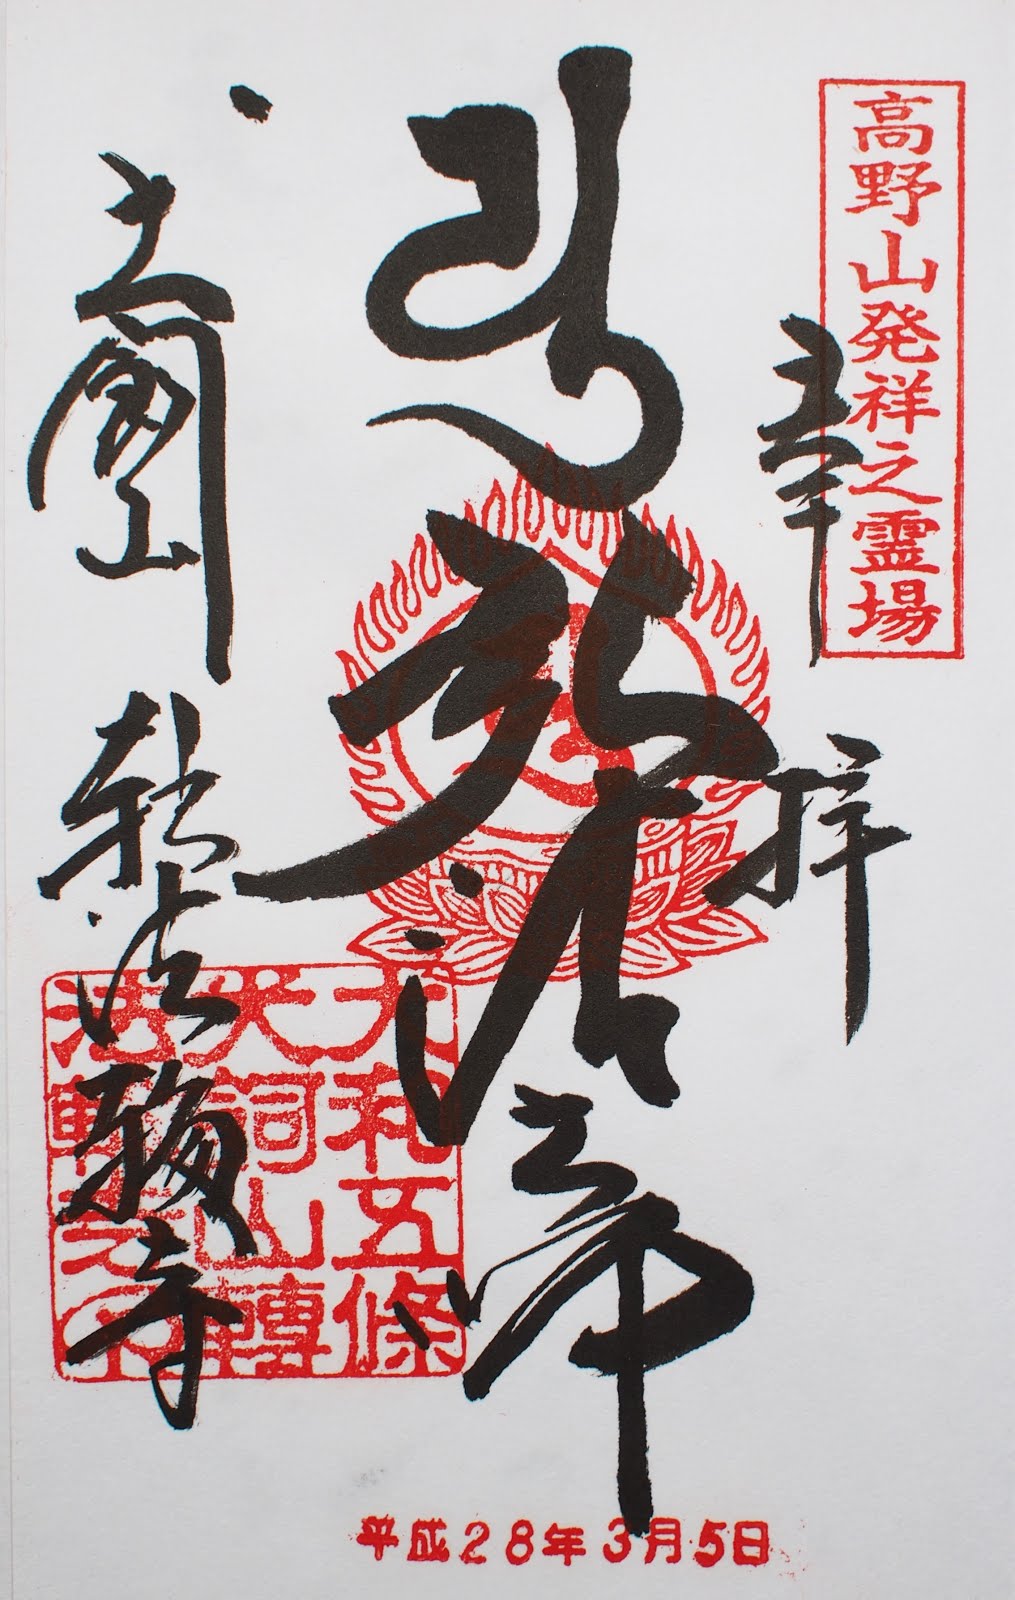 高野山発祥之霊場
奉拝
弘法大師
犬飼山
転法輪寺
大和五條
犬飼山轉
平成28年3月5日